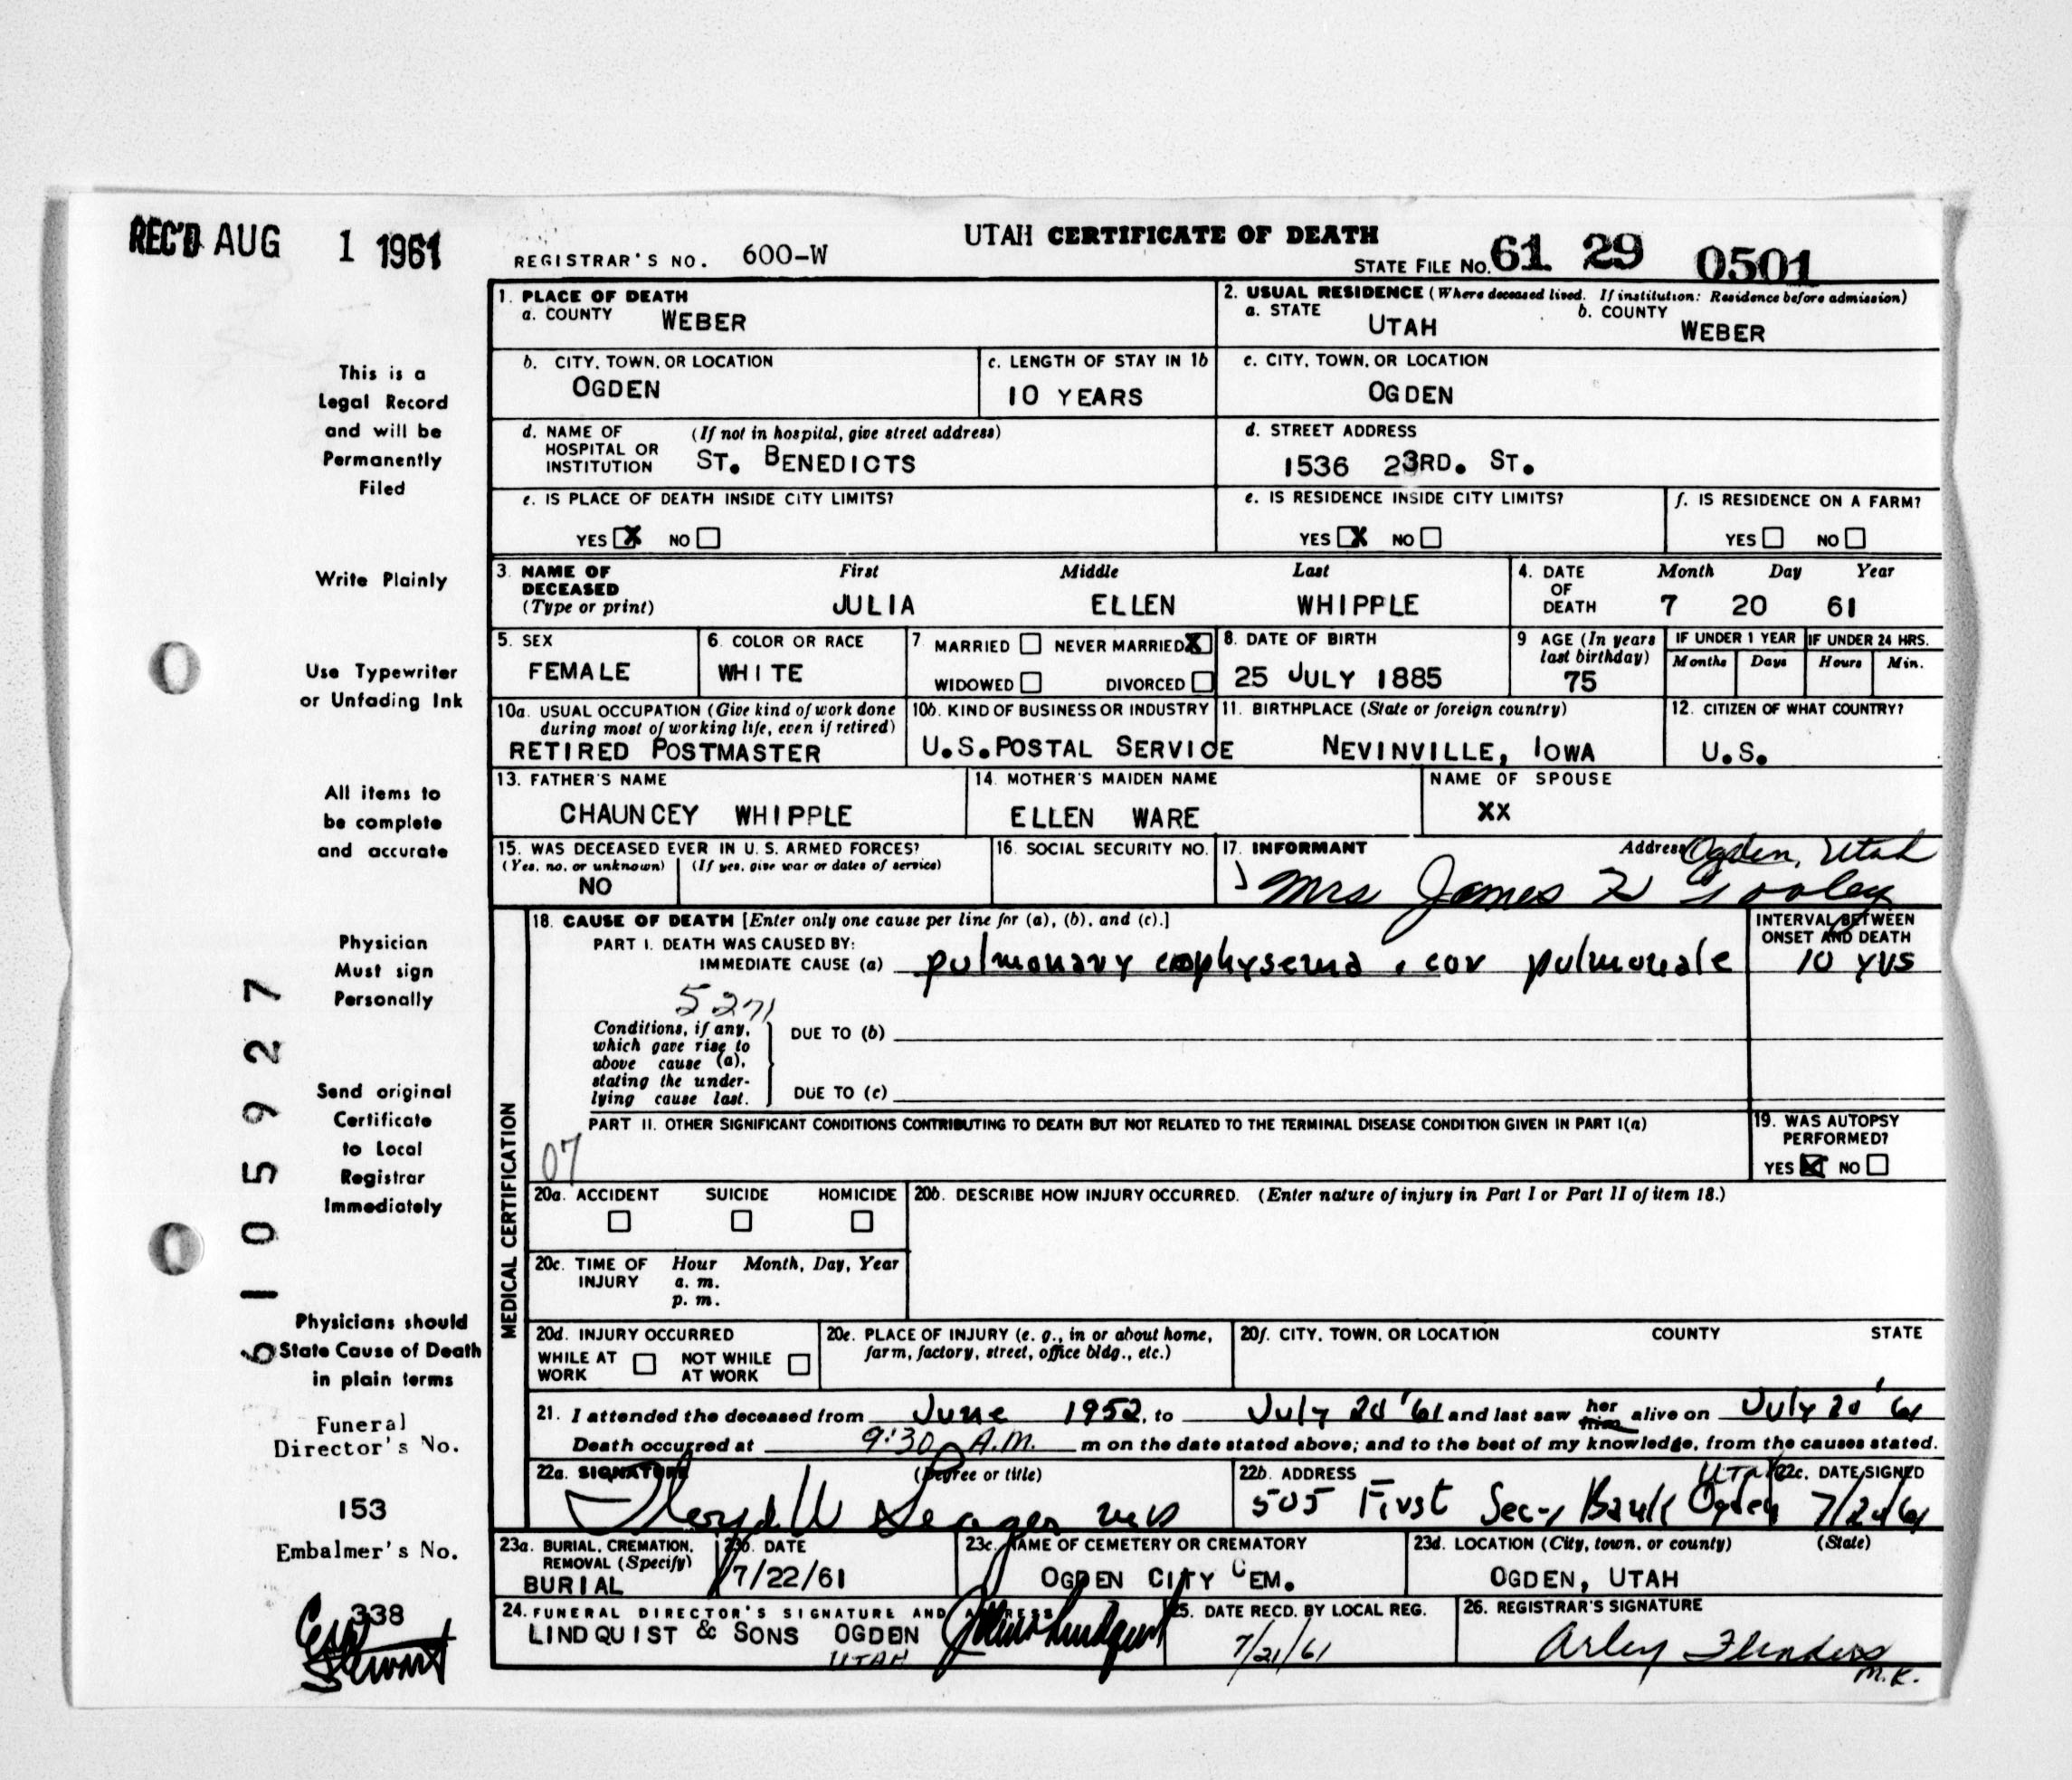 REC'D AUG 1 1961
UTAH CERTIFICATE OF DEATH
REGISTRAR'S NO. 600-W
STATE FILE No. 61 29 0501
This is a
Legal Record
and will be
Permanently
Filed
Write Plainly
Use Typewriter
or Unfading Ink
All items to
be complete
and accurate
Physician
Must sign
Personally
Send original
Certificate
to Local
Registrar
Immediately
Physicians should
State Cause of Death
in plain terms
Funeral
Director's No.
153
Embalmer's No.
338
Stewart
6105927
1. PLACE OF DEATH
a. COUNTY WEBER
2. USUAL RESIDENCE (Where deceased lived. If institution: Residence before admission)
a. STATE UTAH b. COUNTY WEBER
b. CITY, TOWN, OR LOCATION OGDEN
c. LENGTH OF STAY IN 1b 10 YEARS
c. CITY, TOWN, OR LOCATION OGDEN
d. NAME OF HOSPITAL OR INSTITUTION (If not in hospital, give street address)
ST. BENEDICTS
d. STREET ADDRESS
1536 23RD. ST.
e. IS PLACE OF DEATH INSIDE CITY LIMITS?
YES X NO
e. IS RESIDENCE INSIDE CITY LIMITS?
YES X NO
f. IS RESIDENCE ON A FARM?
YES NO
3. NAME OF DECEASED (Type or print) First Middle Last
JULIA ELLEN WHIPPLE
4. DATE OF DEATH Month Day Year
7 20 61
5. SEX FEMALE
6. COLOR OR RACE WHITE
7 MARRIED NEVER MARRIED X
WIDOWED DIVORCED
8. DATE OF BIRTH 25 JULY 1885
9 AGE (In years last birthday) 75
IF UNDER 1 YEAR Months Days
IF UNDER 24 HRS. Hours Min.
10a. USUAL OCCUPATION (Give kind of work done during most of working life, even if retired)
RETIRED POSTMASTER
10b. KIND OF BUSINESS OR INDUSTRY
U.S. POSTAL SERVICE
11. BIRTHPLACE (State or foreign country)
NEVINVILLE, IOWA
12. CITIZEN OF WHAT COUNTRY?
U.S.
13. FATHER'S NAME
CHAUNCEY WHIPPLE
14. MOTHER'S MAIDEN NAME
ELLEN WARE
NAME OF SPOUSE
XX
15. WAS DECEASED EVER IN U. S. ARMED FORCES?
(Yes, no, or unknown) (If yes, give war or dates of service)
NO
16. SOCIAL SECURITY NO.
17. INFORMANT Address Ogden, Utah
Mrs James
MEDICAL CERTIFICATION
18. CAUSE OF DEATH [Enter only one cause per line for (a), (b), and (c).]
INTERVAL BETWEEN ONSET AND DEATH
PART I. DEATH WAS CAUSED BY:
IMMEDIATE CAUSE (a) pulmonary emphysema, cor pulmonale 10 yrs
5271
Conditions, if any, which gave rise to above cause (a), stating the underlying cause last.
DUE TO (b)
DUE TO (c)
PART II. OTHER SIGNIFICANT CONDITIONS CONTRIBUTING TO DEATH BUT NOT RELATED TO THE TERMINAL DISEASE CONDITION GIVEN IN PART I(a)
07
19. WAS AUTOPSY PERFORMED?
YES X NO
20a. ACCIDENT SUICIDE HOMICIDE
20b. DESCRIBE HOW INJURY OCCURRED. (Enter nature of injury in Part I or Part II of item 18.)
20c. TIME OF INJURY Hour Month, Day, Year
a. m.
p. m.
20d. INJURY OCCURRED
WHILE AT WORK NOT WHILE AT WORK
20e. PLACE OF INJURY (e. g., in or about home, farm, factory, street, office bldg., etc.)
20f. CITY, TOWN, OR LOCATION COUNTY STATE
21. I attended the deceased from June 1952, to July 20 '61 and last saw her him alive on July 20 '61
Death occurred at 9:30 A.M. m on the date stated above; and to the best of my knowledge, from the causes stated.
22a. SIGNATURE (Degree or title)
22b. ADDRESS
505 First Sec-y Bank Ogden Utah
22c. DATE SIGNED
7/20/61
23a. BURIAL, CREMATION, REMOVAL (Specify)
BURIAL
23b. DATE
7/22/61
23c. NAME OF CEMETERY OR CREMATORY
OGDEN CITY CEM.
23d. LOCATION (City, town, or county) (State)
OGDEN, UTAH
24. FUNERAL DIRECTOR'S SIGNATURE AND ADDRESS
LINDQUIST & SONS OGDEN
UTAH
25. DATE RECD. BY LOCAL REG.
7/21/61
26. REGISTRAR'S SIGNATURE
Arley Flinders
M.K.